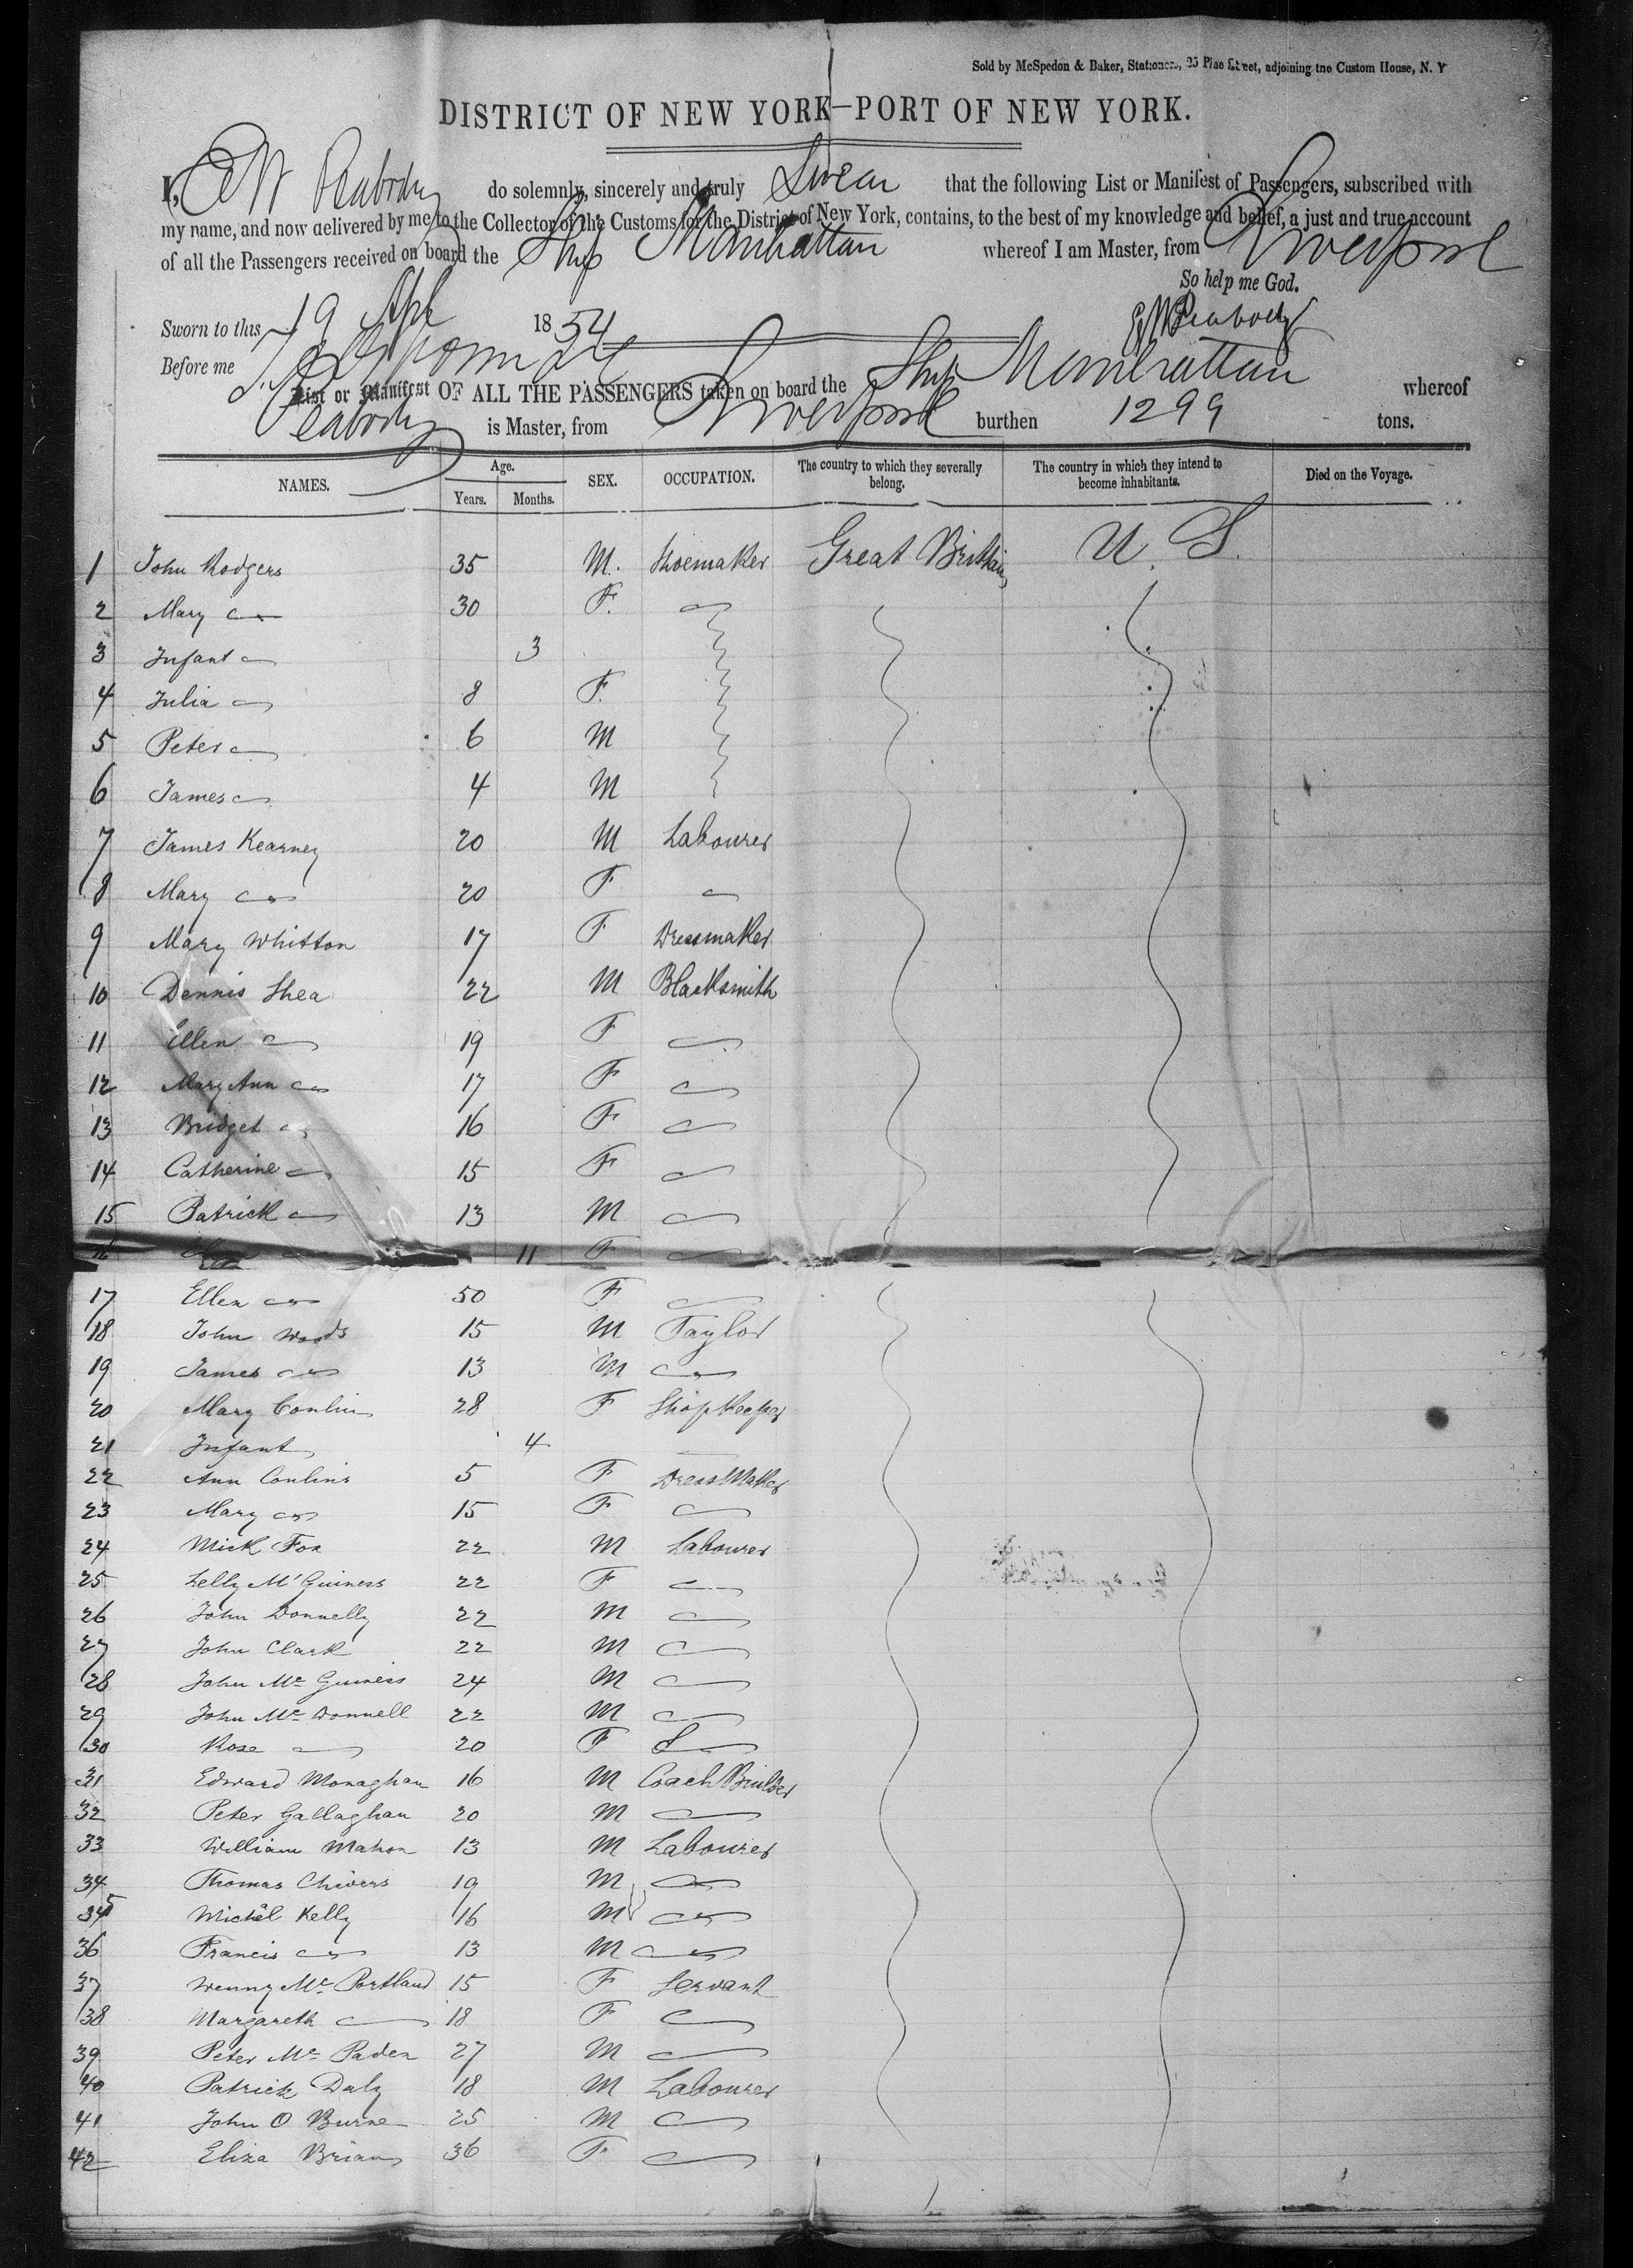 Sold by McSpedon & Baker, Stationers, 25 Pine Street, adjoining the Custom House, N. Y
DISTRICT OF NEW YORK—PORT OF NEW YORK.
I, E W Peabody do solemnly, sincerely and truly Swear that the following List or Manifest of Passengers, subscribed with
my name, and now delivered by me to the Collector of the Customs for the District of New York, contains, to the best of my knowledge and belief, a just and true account
of all the Passengers received on board the Ship Manhattan whereof I am Master, from Liverpool
So help me God.
Sworn to this 19 Apl 1854 E W Peabody
Before me
List or Manifest OF ALL THE PASSENGERS taken on board the Ship Manhattan whereof
Peabody is Master, from Liverpool burthen 1299 tons.
NAMES. Age. Years. Months. SEX. OCCUPATION. The country to which they severally belong. The country in which they intend to become inhabitants. Died on the Voyage.
1 John Rodgers 35 M. Shoemaker Great Brittain U. S.
2 Mary 30 F.
3 Infant 3
4 Julia 8 F.
5 Peter 6 M
6 James 4 M
7 James Kearney 20 M Labourer
8 Mary 20 F
9 Mary Whitton 17 F Dressmaker
10 Dennis Shea 22 M Blacksmith
11 Ellen 19 F
12 Mary Ann 17 F
13 Bridget 16 F
14 Catherine 15 F
15 Patrick 13 M
16 11 F
17 Ellen 50 F
18 John Woods 15 M Taylor
19 James 13 M
20 Mary Conlin 28 F Shopkeeper
21 Infant 4
22 Ann Conlins 5 F DressMaker
23 Mary 15 F
24 Mick Fox 22 M Labourer
25 Lelly McGuiness 22 F
26 John Donnelly 22 M
27 John Clark 22 M
28 John Mc Guiness 24 M
29 John Mc Donnell 22 M
30 Rose 20 F
31 Edward Monaghan 16 M Coach Builder
32 Peter Gallaghan 20 M
33 William Mahon 13 M Labourer
34 Thomas Chivers 19 M
35 Michel Kelly 16 M
36 Francis 13 M
37 Wenny Mc Portland 15 F Servant
38 Margareth 18 F
39 Peter Mc Paden 27 M
40 Patrick Daly 18 M Labourer
41 John O Burne 25 M
42 Eliza Brian 36 F